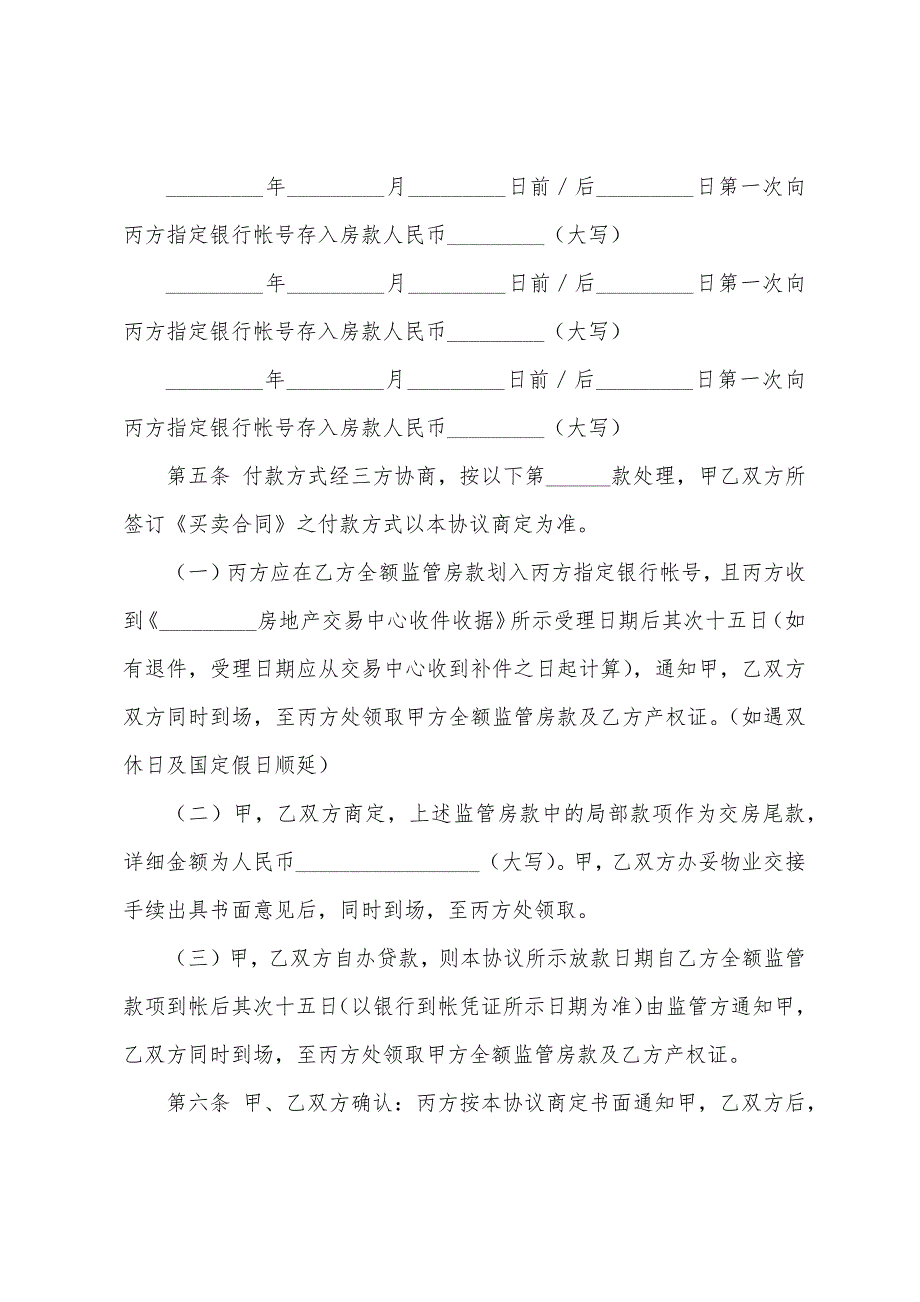 _________年_________月_________日前/后_________日第一次向
丙方指定银行帐号存入房款人民币_________(大写)
_________年_________月_________日前/后_________日第一次向
丙方指定银行帐号存入房款人民币_________(大写)
_________年_________月_________日前/后_________日第一次向
丙方指定银行帐号存入房款人民币_________(大写)
第五条 付款方式经三方协商，按以下第______款处理，甲乙双方所
签订《买卖合同》之付款方式以本协议商定为准。
（一）丙方应在乙方全额监管房款划入丙方指定银行帐号，且丙方收
到《_________房地产交易中心收件收据》所示受理日期后其次十五日(如
有退件，受理日期应从交易中心收到补件之日起计算)，通知甲，乙双方
双方同时到场，至丙方处领取甲方全额监管房款及乙方产权证。(如遇双
休日及国定假日顺延)
（二）甲，乙双方商定，上述监管房款中的局部款项作为交房尾款，
详细金额为人民币_________________(大写)。甲，乙双方办妥物业交接
手续出具书面意见后，同时到场，至丙方处领取。
（三）甲，乙双方自办贷款，则本协议所示放款日期自乙方全额监管
款项到帐后其次十五日(以银行到帐凭证所示日期为准)由监管方通知甲，
乙双方同时到场，至丙方处领取甲方全额监管房款及乙方产权证。
第六条 甲、乙双方确认：丙方按本协议商定书面通知甲，乙双方后，